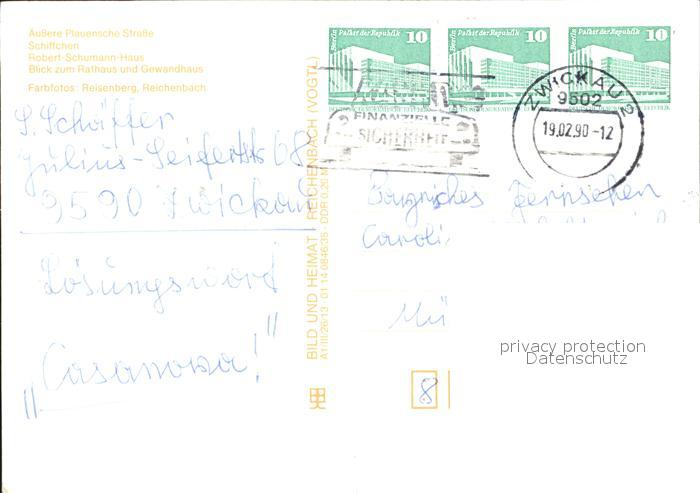 Äußere Plauensche Straße
Schiffchen
Robert-Schumann-Haus
Blick zum Rathaus und Gewandhaus
Farbfotos: Reisenberg, Reichenbach
S. Schäffer
Julius-Seifert-Str 68
9590 Zwickau
Lösungswort
„Casanova!"
BILD UND HEIMAT REICHENBACH (VOGTL)
A1/III/26/13 · 01 14 0846/35 · DDR 0,20 M
Berlin Palast der Republik 10
Berlin Palast der Republik 10
Berlin Palast der Republik 10
FINANZIELLE
SICHERHEIT
ZWICKAU 2
9502
19.02.90-12
Bayrisches Fernsehen
Caroli
Mü
8
privacy protection
Datenschutz